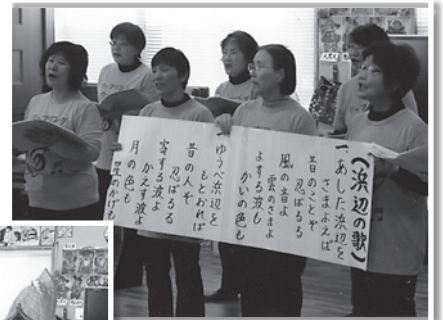 (浜辺の歌)
一、あした浜辺を
さまよえば
昔のことぞ
忍ばるる
風の音よ
雲のさまよ
よする波も
かいの色も
ゆうべ浜辺を
もとおれば
昔の人ぞ
忍ばるる
寄する波よ
かえす波よ
月の色も
星のかげも